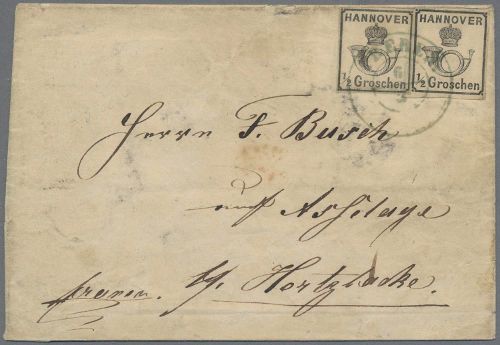 HANNOVER HANNOVER
½ Groschen ½ Groschen
Herrn F. Busch
auf Arfilage
franco. by Hortzlacke.